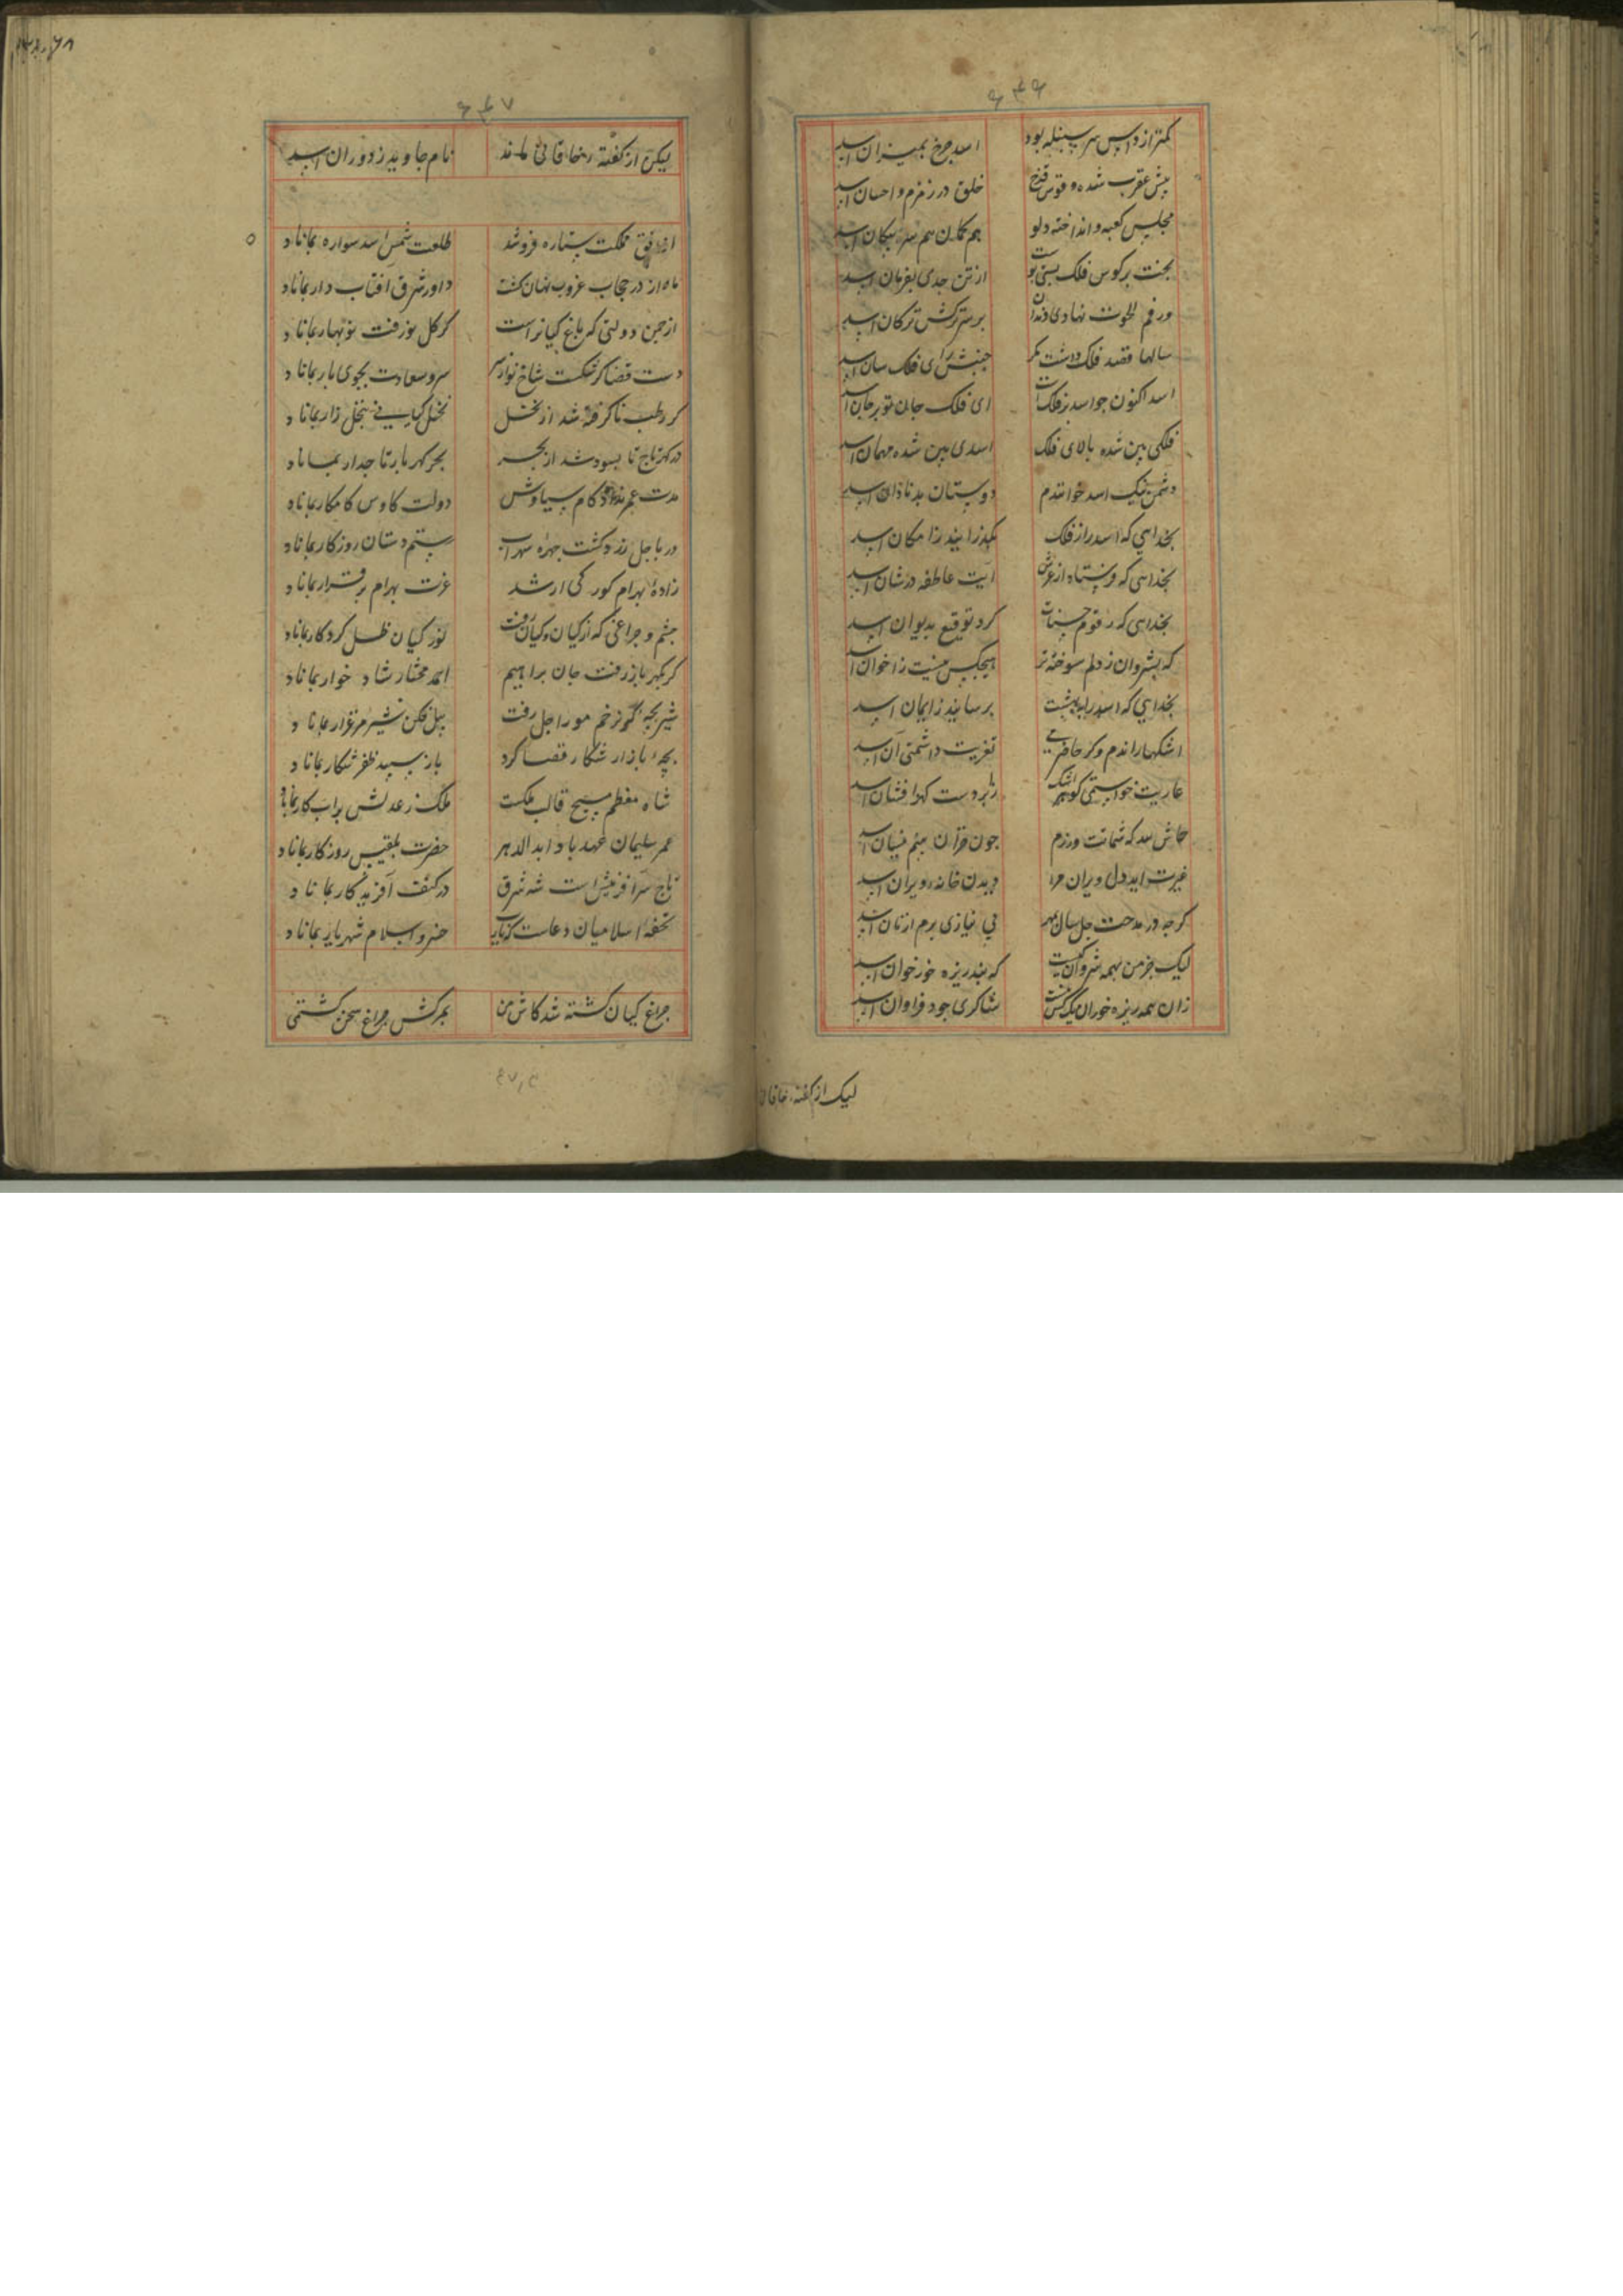 ۶۴۶
کمتر از داس سر سنبله بود اسد چرخ بمیزان اسد
پیش عقرب شده و قوس قزح خلق در زمزم و احسان اسد
مجلس کعبه و انداخته دلو هم کمان هم سر پیکان اسد
بخت بر کوس فلک از تن جدی بفرمان اسد
ور فم الحوت نهادی دندان بر سر ترکش ترکان اسد
سالها قصد فلک داشت مکر جنبش رای فلک سان اسد
اسد اکنون جو اسد بر فلکست ای فلک جان تو بر جان اسد
فلکی بین شده بالای فلک اسدی بین شده مهمان اسد
دشمن نیک اسد خوانندم دوستان بد نادان اسد
بخدایی که اسد را ز فلک بکذرانید زامکان اسد
بخدایی که فرستاد از عرش آیت عاطفه در شان اسد
بخدایی که رقوم حسنات کرد توقیع بدیوان اسد
که بشروان ز دلم سوخته تر هیجکس نیست ز اخوان اسد
بخدایی که اسد را ببهشت برسانید ز ایمان اسد
اشکها راندم و کر حاضرمی تعزیت داشتمی آن اسد
عاریت خواستمی کوهر اشک ز ابر دست کهر افشان اسد
حاش لله که شماتت ورزم جون قران بینم فتیان اسد
غیرت آید دل ویران مرا دیدن خانه ویران اسد
کرجه در مدحت جل سال بی نیازی برم از نان اسد
لیک جز من بهمه شروان کیست که بند ریزه خور خوان اسد
زان همه ریزه خوران شاکری جود فراوان اسد
لیک از کفته خاقانی
۶۴۷
لیکن از کفته خاقانی ماند نام جاوید ز دوران اسد
از افق مملکت ستاره فرو شد طلعت شمس اسد سواره بماناد
ماه ار در حجاب غروب نهان کشت داور شرق افتاب دار بماناد
از جمن دولتی که باغ کیانراست کر کل نو رفت نو بهار بماناد
دست قضا کر شکست شاخ نو از سرو سعادت بجوی بار بماناد
کر رطب ناکرفته شد از نخل نخل کیانی بنخل زار بماناد
در کهر تاج تا بسود شد از بحر بحر کهر بار تاجدار بماناد
مدت عمر ار نداد کام سیاوش دولت کاوس کامکار بماناد
ور باجل زرد کشت جهره سهراب رستم دستان روزکار بماناد
زاده بهرام کور کی ار شد عزت بهرام برقرار بماناد
جشم و جراغی که از کیان و کیان رفت نور کیان ظل کردکار بماناد
کر بکهر باز رفت جان براهیم احمد مختار شاد خوار بماناد
شیر بجه کر بزخم مور اجل رفت پیل فکن شیر مرغزار بماناد
بجه باز ار شکار قضا کرد باز سپید ظفر شکار بماناد
شاه معظم مسیح قالب ملکست ملک ز عدلش بر اب کار بماناد
عمر سلیمان عهد باد ابد الدهر حضرت بلقیس روزکار بماناد
تاج سر آفرینش است شه شرق در کنف آفریدکار بماناد
تحفه اسلامیان دعاست خسرو اسلام شهریار بماناد
جراغ کیان کشته شد کاش من بمرکش جراغ سخن کشتمی